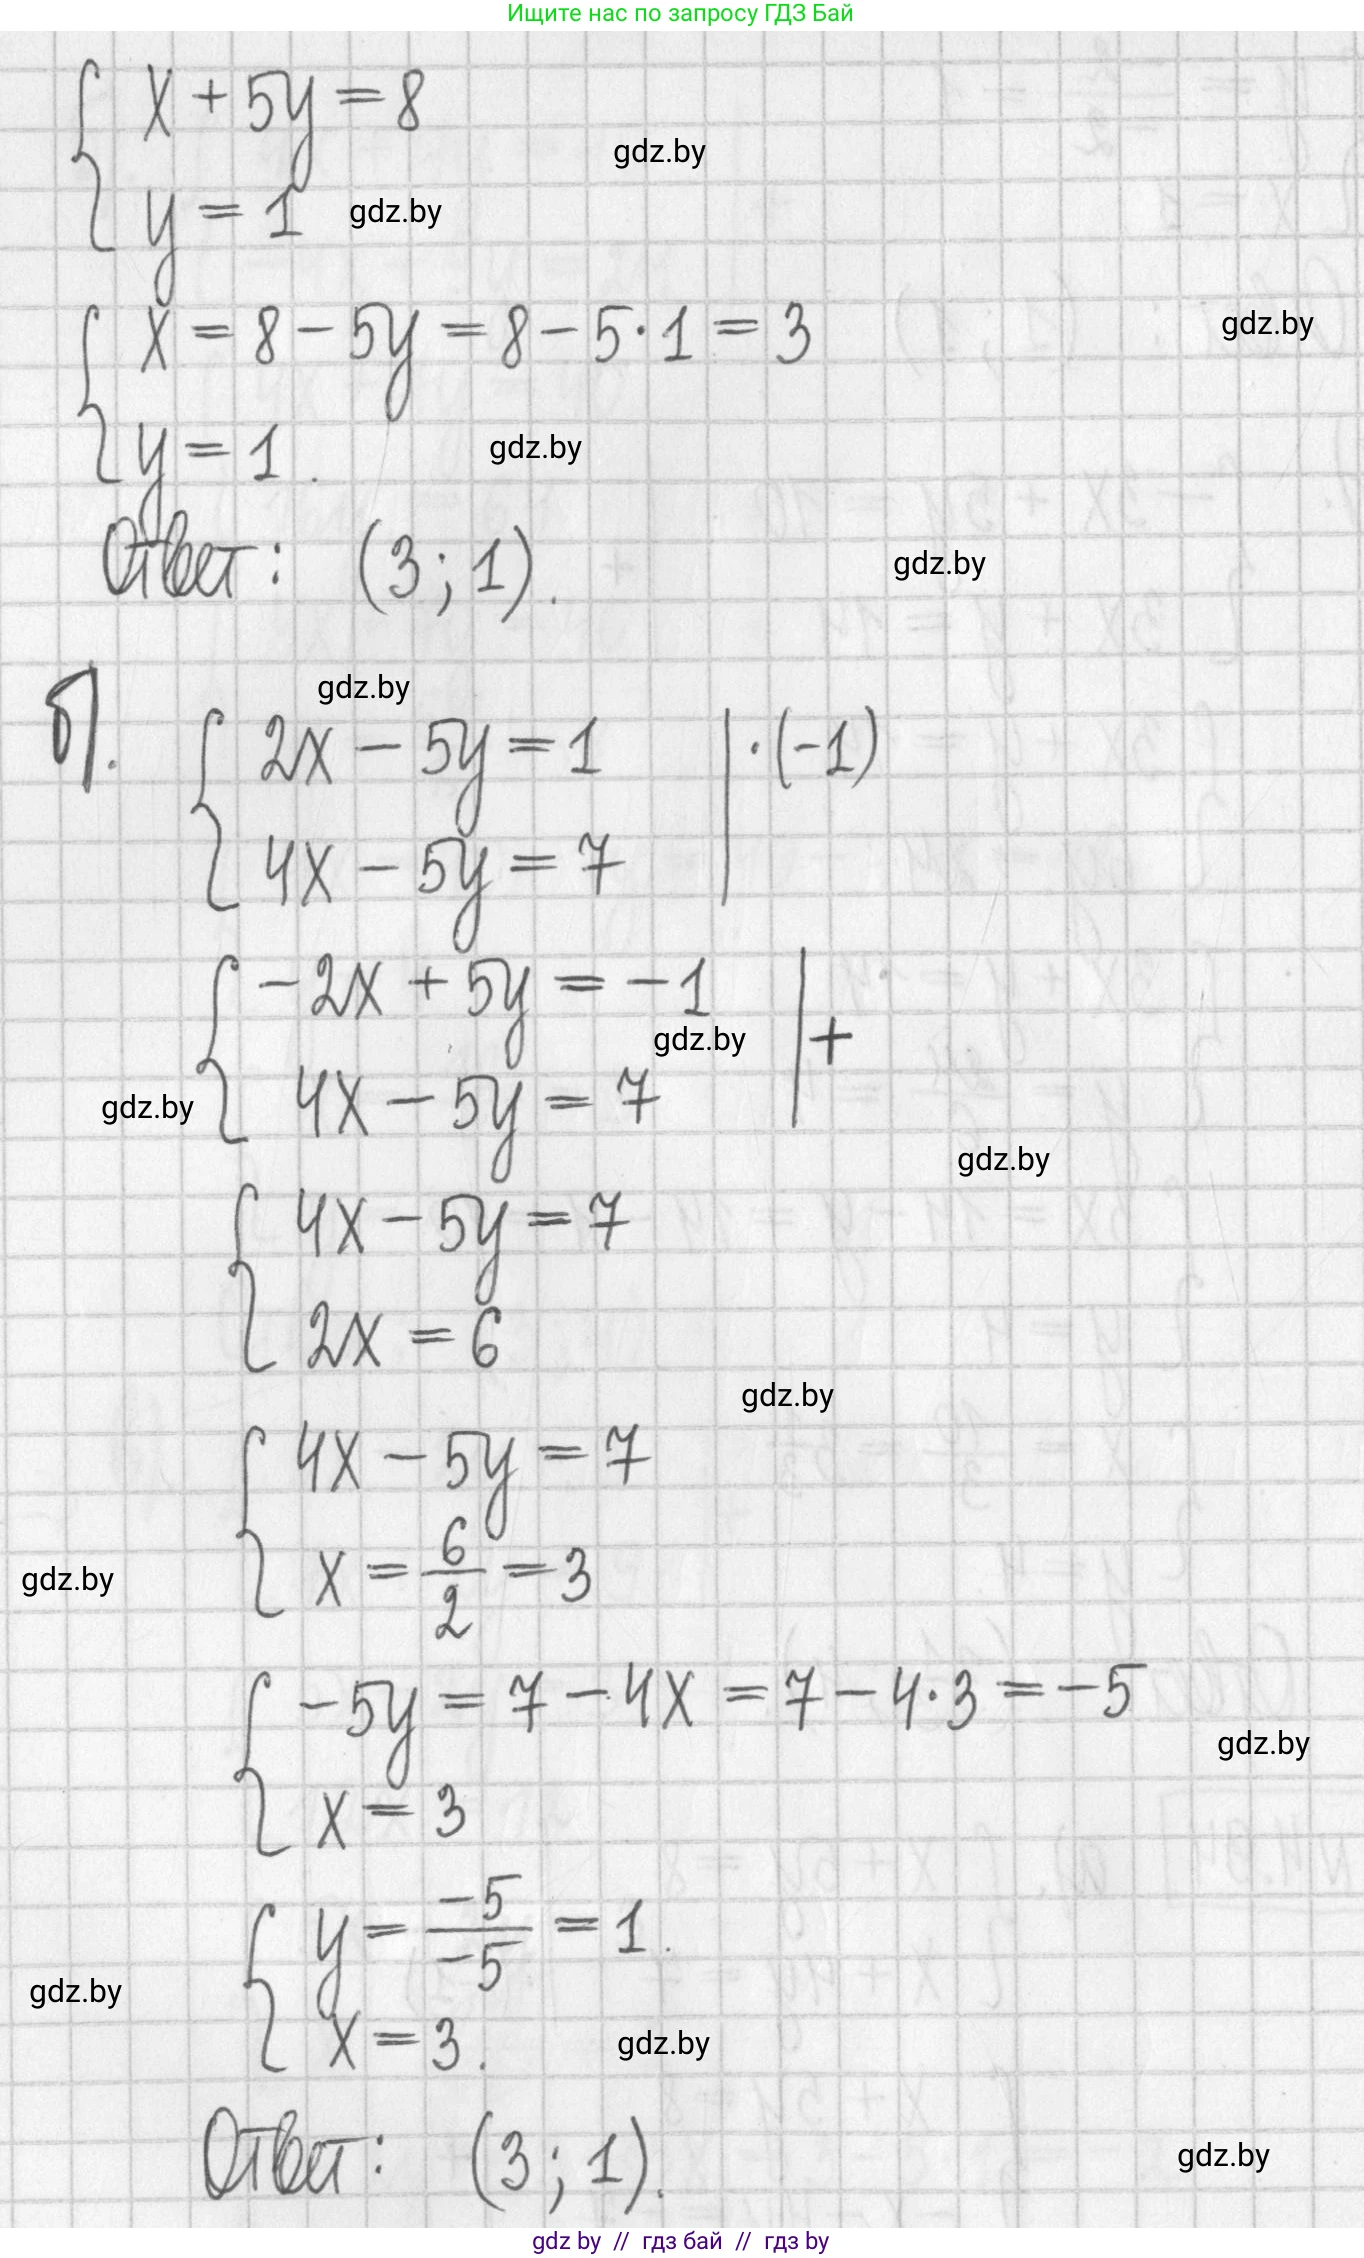 Ищите нас по запросу ГДЗ Бай
x + 5y = 8
gdz.by
y = 1
gdz.by
x = 8 - 5y = 8 - 5·1 = 3
gdz.by
y = 1.
gdz.by
Ответ: (3; 1).
gdz.by
б).
gdz.by
2x - 5y = 1 | ·(-1)
4x - 5y = 7
-2x + 5y = -1 | +
gdz.by
4x - 5y = 7
gdz.by
gdz.by
4x - 5y = 7
2x = 6
gdz.by
4x - 5y = 7
x = 6/2 = 3
gdz.by
-5y = 7 - 4x = 7 - 4·3 = -5
gdz.by
x = 3
y = -5/-5 = 1.
gdz.by
x = 3.
gdz.by
Ответ: (3; 1).
gdz.by
gdz by // гдз бай // гдз by